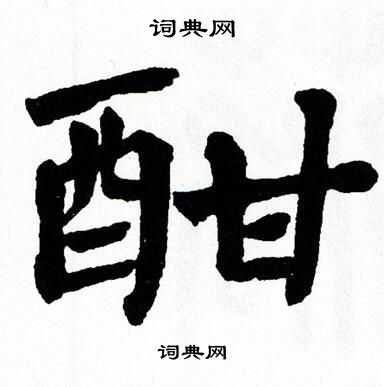 词典网
酣
词典网